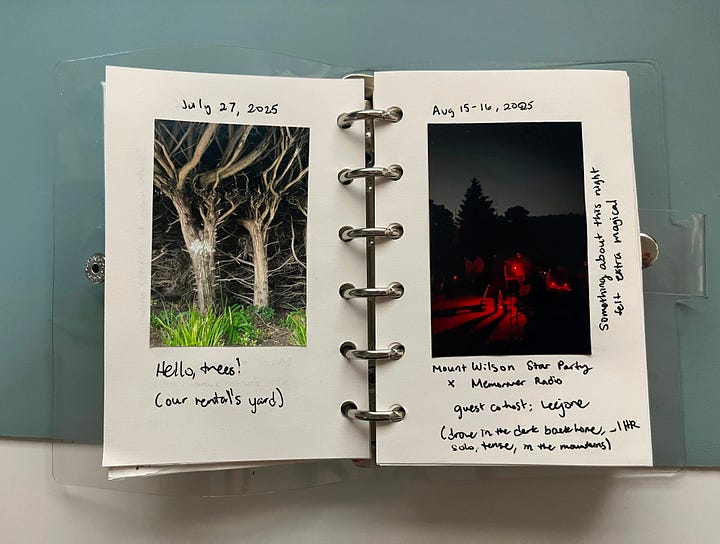 July 27, 2025
Hello, trees!
(our rental's yard)
Aug 15-16, 2025
Something about this night
felt extra magical
Mount Wilson Star Party
x Memormer Radio
guest cohost: Leejone
(drove in the dark back home, ~1 HR
solo, tense, in the mountains)